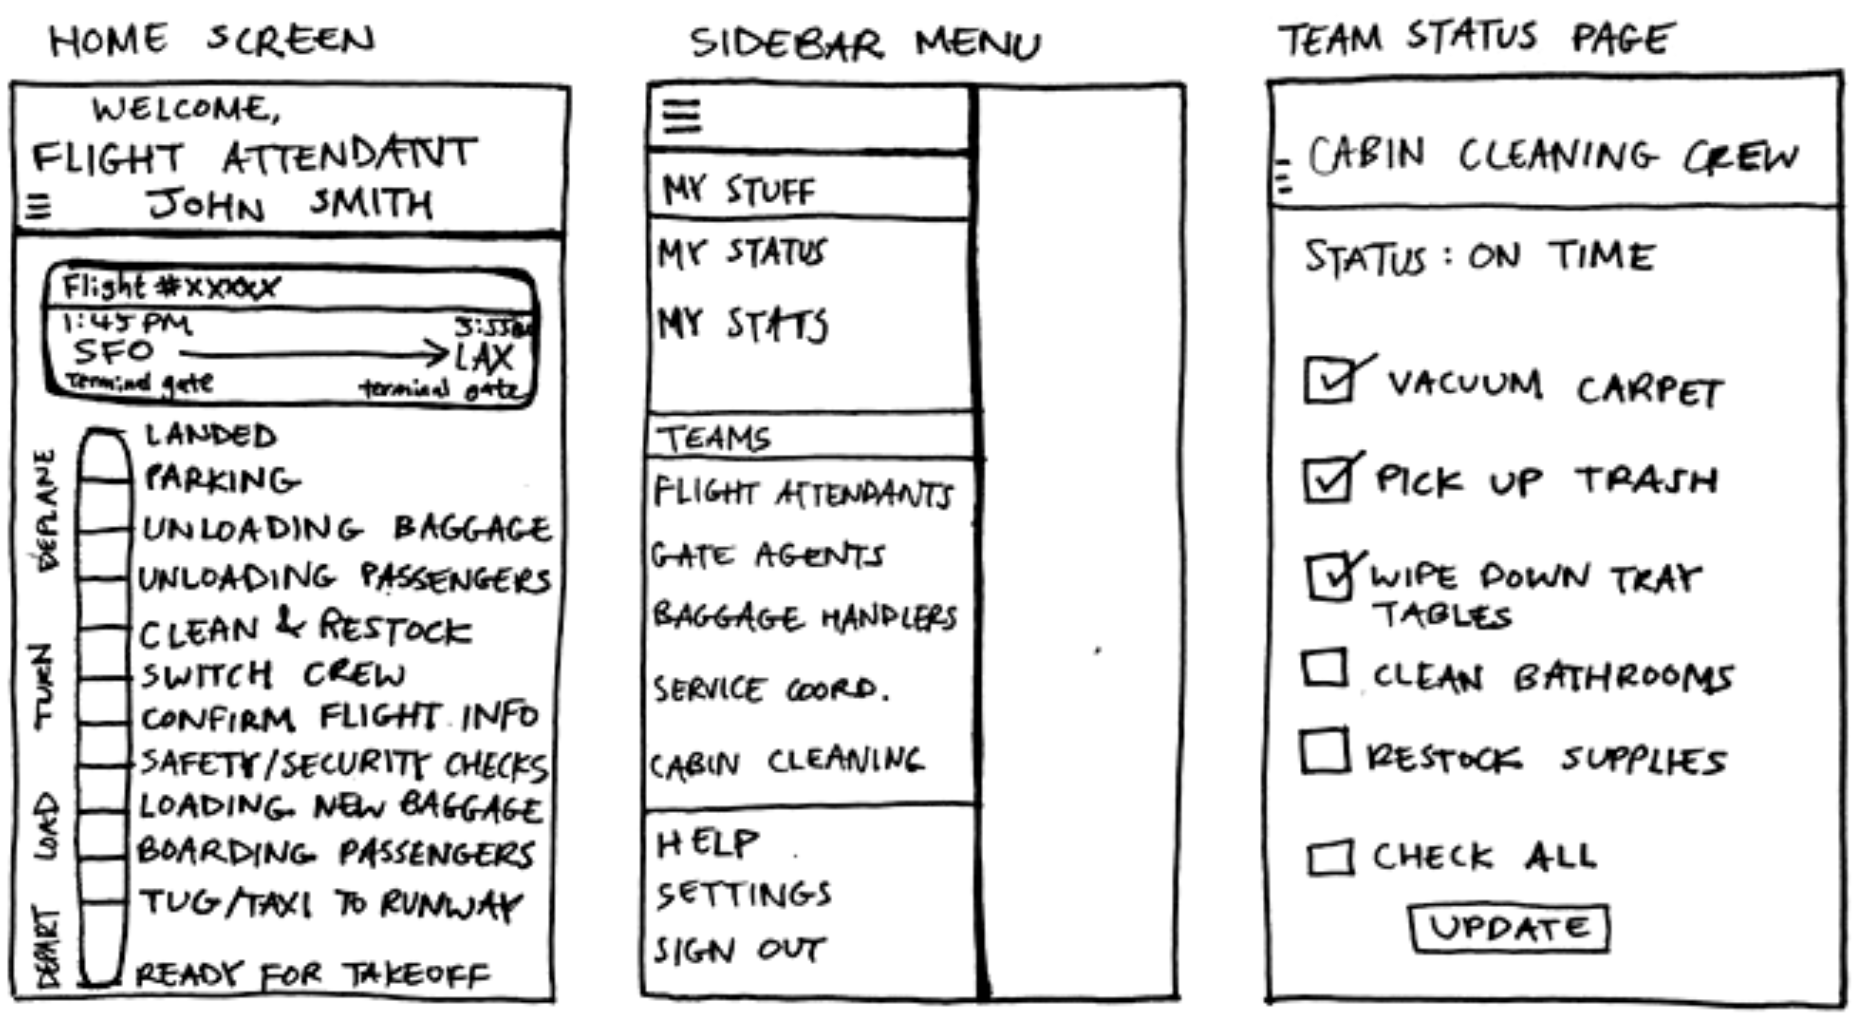 HOME SCREEN
WELCOME,
FLIGHT ATTENDANT
JOHN SMITH
Flight #XXXXX
1:45 PM
SFO LAX
Terminal gate terminal gate
DEPLANE
TURN
LOAD
DEPART
LANDED
PARKING
UNLOADING BAGGAGE
UNLOADING PASSENGERS
CLEAN & RESTOCK
SWITCH CREW
CONFIRM FLIGHT INFO
SAFETY/SECURITY CHECKS
LOADING NEW BAGGAGE
BOARDING PASSENGERS
TUG/TAXI TO RUNWAY
READY FOR TAKEOFF
SIDEBAR MENU
MY STUFF
MY STATUS
MY STATS
TEAMS
FLIGHT ATTENDANTS
GATE AGENTS
BAGGAGE HANDLERS
SERVICE COORD.
CABIN CLEANING
HELP
SETTINGS
SIGN OUT
TEAM STATUS PAGE
CABIN CLEANING CREW
STATUS: ON TIME
VACUUM CARPET
PICK UP TRASH
WIPE DOWN TRAY
TABLES
CLEAN BATHROOMS
RESTOCK SUPPLIES
CHECK ALL
UPDATE